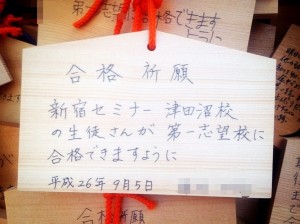 第一志望に合格できます
ように
合格祈願
新宿セミナー 津田沼校
の生徒さんが 第一志望校に
合格できますように
平成26年 9月5日
合格祈願